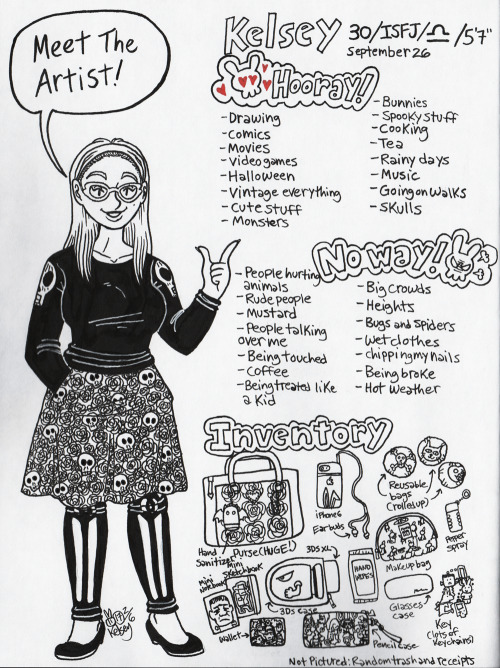 Meet The
Artist!
Kelsey 30/ISFJ/♎/5'7"
September 26
Hooray!
- Drawing
- Comics
- Movies
- Videogames
- Halloween
- Vintage everything
- Cute stuff
- Monsters
- Bunnies
- Spooky stuff
- Cooking
- Tea
- Rainy days
- Music
- Going on walks
- Skulls
No way!
- People hurting
animals
- Rude people
- Mustard
- People talking
over me
- Being touched
- Coffee
- Being treated like
a kid
- Big crowds
- Heights
- Bugs and Spiders
- Wet clothes
- chipping my nails
- Being broke
- Hot weather
Inventory
Hand
Sanitizer
Purse (HUGE!)
iPhone 6
Earbuds
Reusable
bags
(rolled up)
Pepper
spray
Makeup bag
Mini
notebook
Mini
Sketchbook
3DS XL
3DS case
HAND
WIPES
Glasses
case
Key
(lots of
keychains)
Wallet
Pencil case
Not Pictured: Random trash and receipts
Kelsey